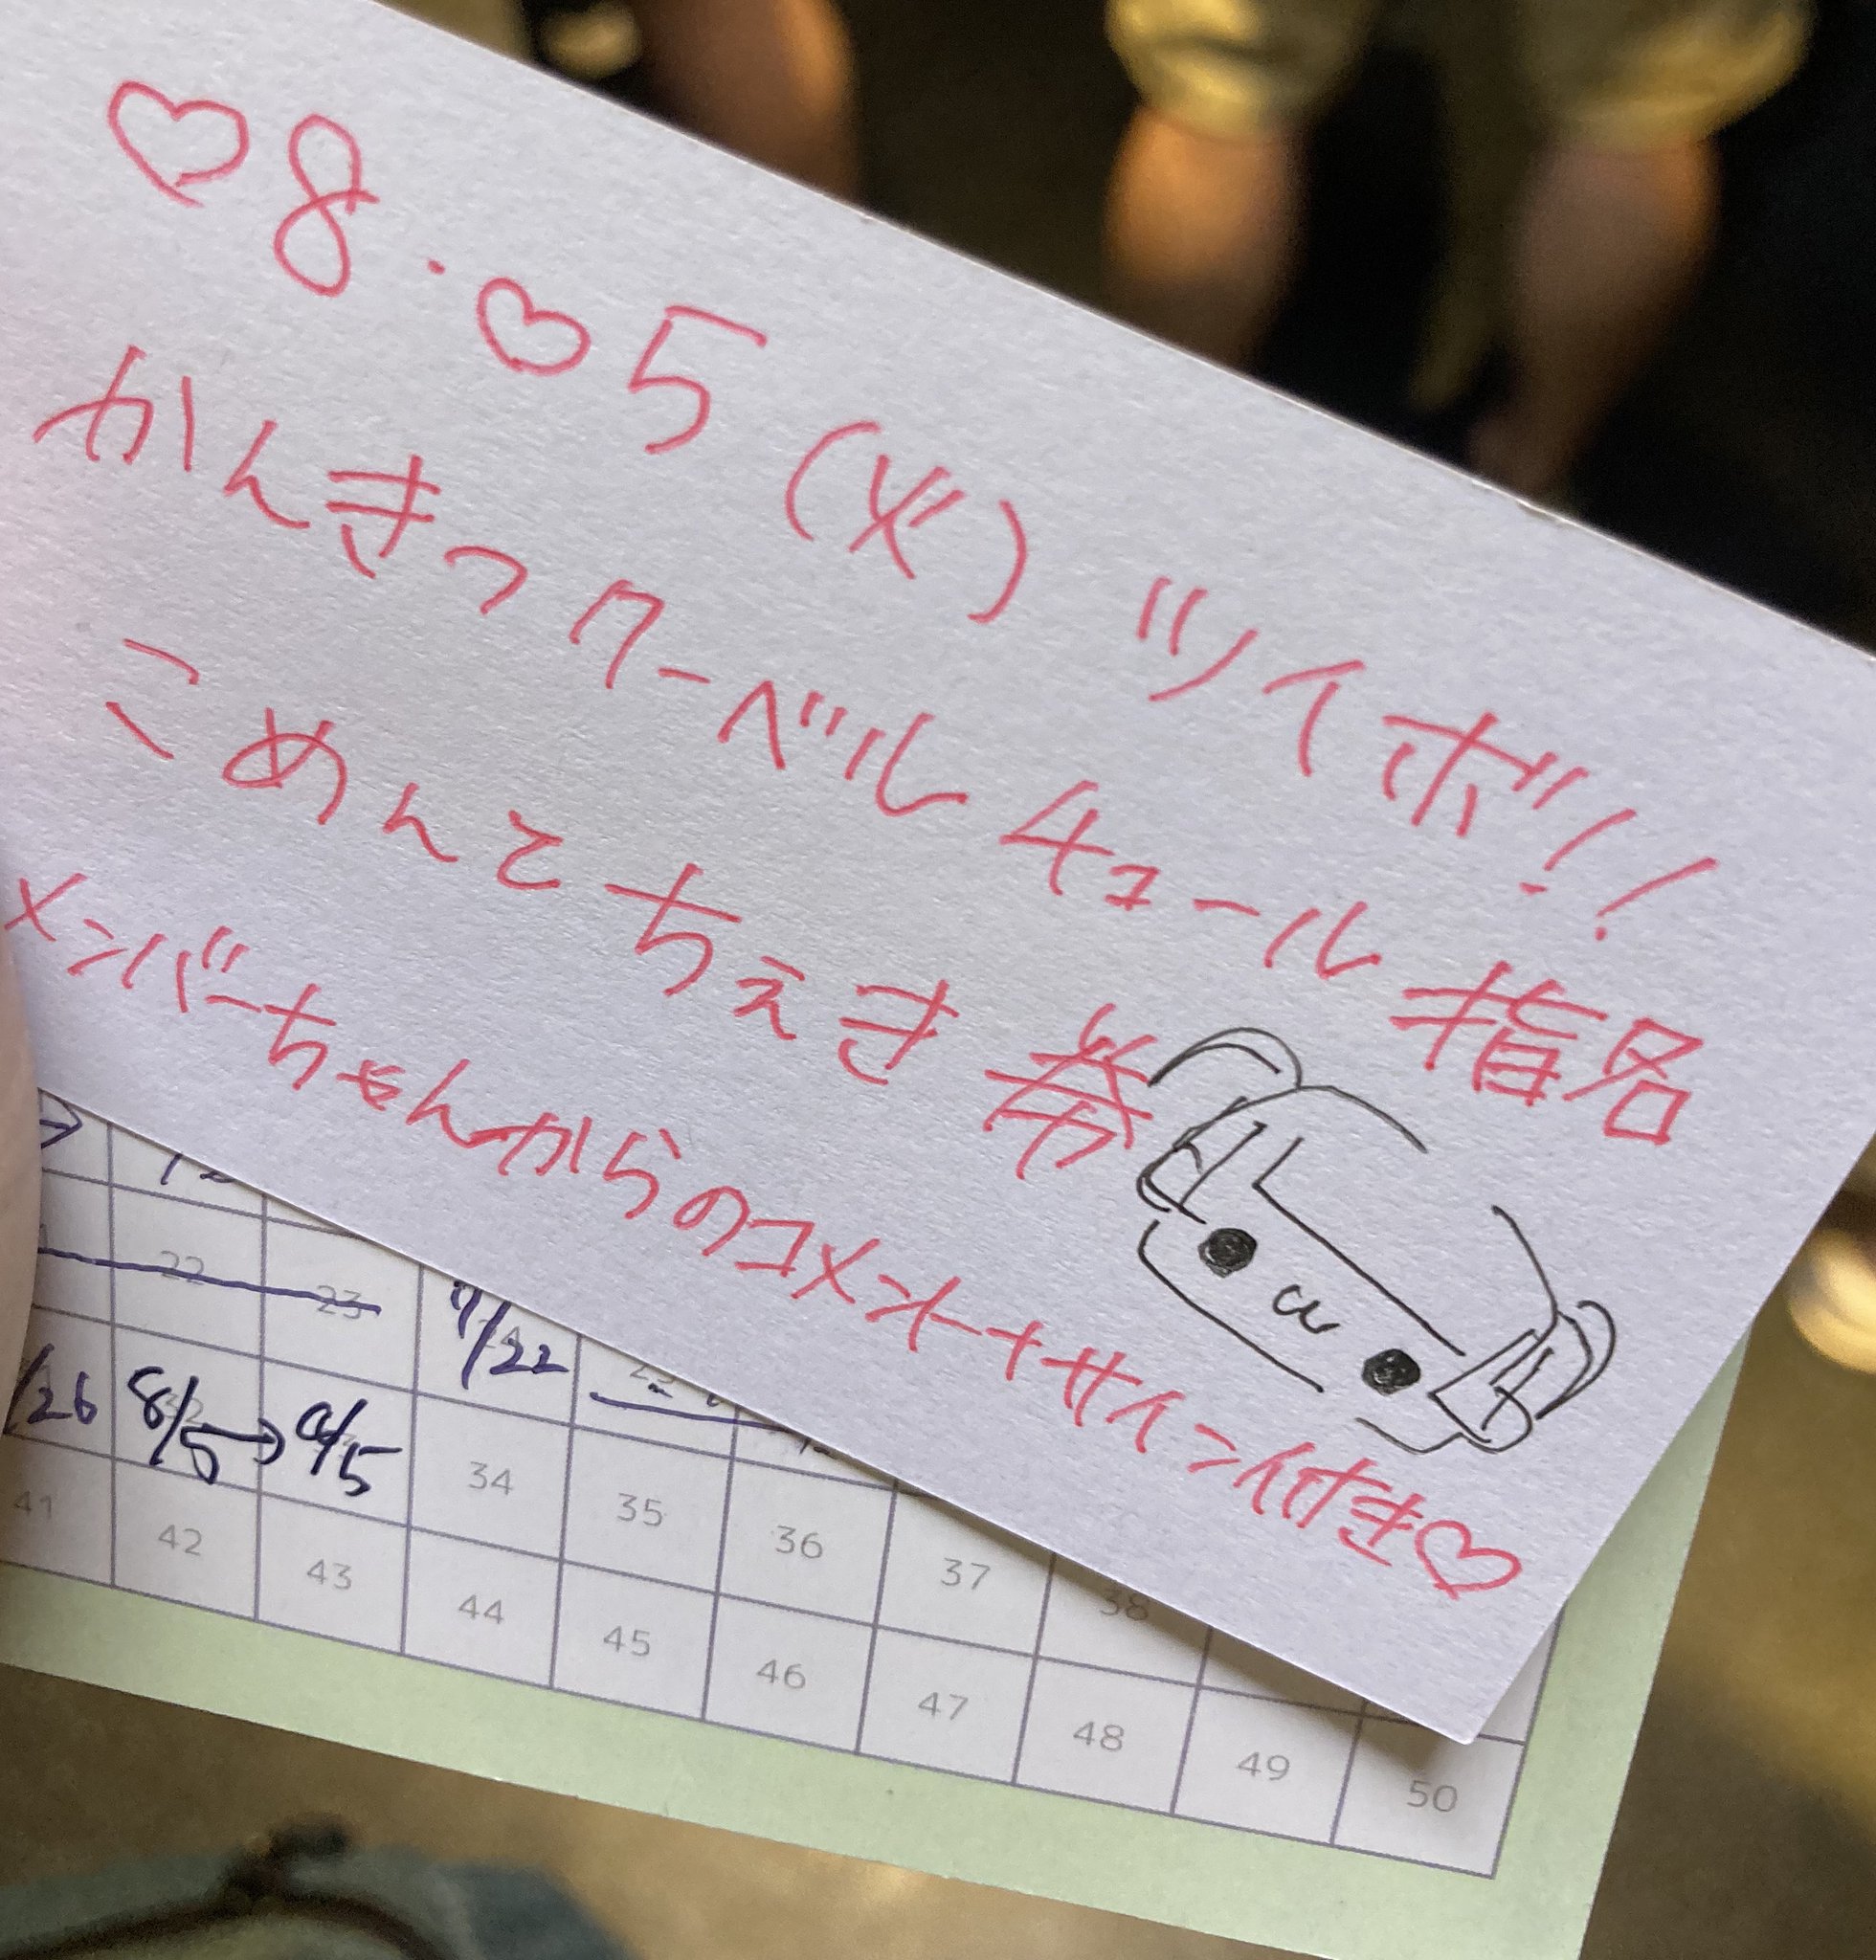 ♡8.♡5(火)ツイボ!!
かんきつクーベルチュール指名
こめんとちぇき券
メンバーちゃんからのコメント+サイン付き♡
22 23 7/22
/26 8/5→9/5 34 35 36 37 38
41 42 43 44 45 46 47 48 49 50